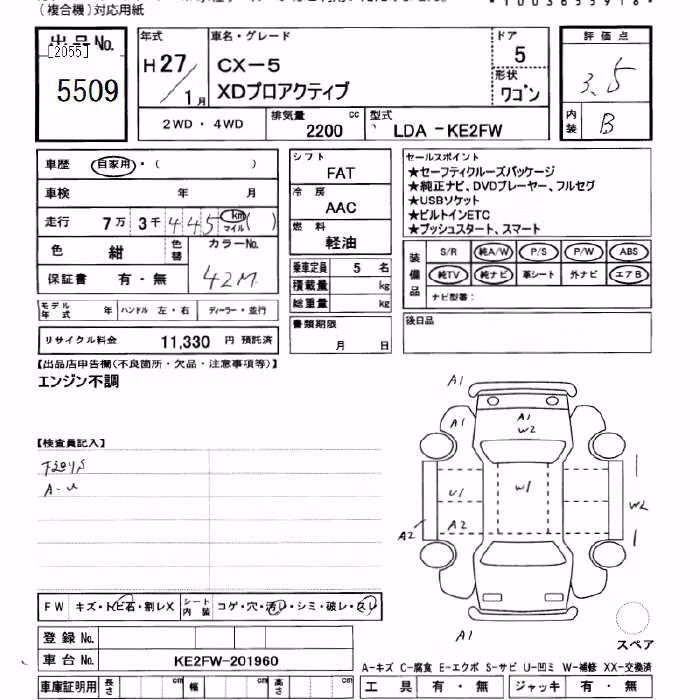 (複合機)対応用紙
出品No.
[2055]
5509
年式
H27/1月
車名・グレード
CX-5
XDプロアクティブ
ドア
5
形状
ワゴン
評価点
3.5
内装
B
2WD・4WD
排気量
2200 cc
型式
LDA -KE2FW
車歴 自家用・( )
車検 年 月
走行 7万3千445 km マイル ( )
色 紺 色替 カラーNo. 42M
保証書 有・無
モデル年式 年 ハンドル 左・右 ディーラー・並行
リサイクル料金 11,330 円 預託済
シフト
FAT
冷房
AAC
燃料
軽油
乗車定員 5 名
積載量 kg
総重量 kg
書類期限
月 日
セールスポイント
★セーフティクルーズパッケージ
★純正ナビ、DVDプレーヤー、フルセグ
★USBソケット
★ビルトインETC
★プッシュスタート、スマート
装備品
S/R 純A/W P/S P/W ABS
純TV 純ナビ 革シート 外ナビ エアB
ナビ型番:
後日品
【出品店申告欄(不良箇所・欠品・注意事項等)】
エンジン不調
【検査員記入】
A-U
A1
A1
A1
W2
U1
W1
A2
A2
W2
A1
スペア
FW キズ・トビ石・割レX シート内装 コゲ・穴・汚レ・シミ・破レ・スレ
登録No.
車台No. KE2FW-201960
車庫証明用 長さ cm 幅 cm 高さ cm
A-キズ C-腐食 E-エクボ S-サビ U-凹ミ W-補修 XX-交換済
工具 有・無 ジャッキ 有・無